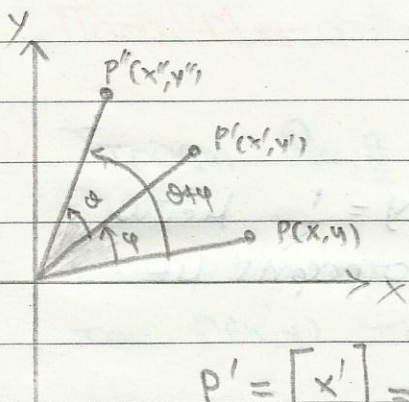 Y
P''(x'',y'')
P'(x',y')
θ
θ+φ
φ
P(x,y)
X
P' = [x'] =